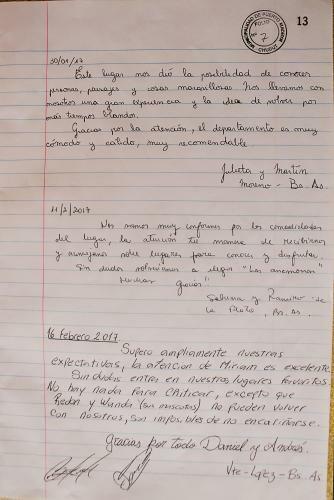 13
MUNICIPALIDAD DE PUERTO MADRYN
FOLIO
Nº 7
CHUBUT
30/01/17
Este lugar nos dió la posibilidad de conocer
personas, paisajes y cosas maravillosas. Nos llevamos con
nosotros una gran experiencia y la idea de volver por
más tiempo
Gracias por la atención, el departamento es muy
cómodo y calido, muy recomendable
Julieta y Martín
Moreno - Bs. As.
11/2/2017
Nos vamos muy conformes por las comodidades
del lugar, la atención tu manera de recibirnos
y aconsejarnos sobre lugares para conocer y disfrutar.
Sin dudas volveriamos a elegir "Las anemonas"
Muchas Gracias.
Sabrina y Ramiro de
La Plata, Bs. As.
16 Febrero 2017
Supero ampliamente nuestras
expectativas, la atencion de Miriam es excelente.
Sin dudas entra en nuestros lugares favoritos.
No hay nada para criticar, excepto que
Redon y Wanda (sus mascotas) no pueden volver
con nosotros, son imposibles de no encariñarse.
Gracias por todo Daniel y Andrés.
Vte-Lopez - Bs. As